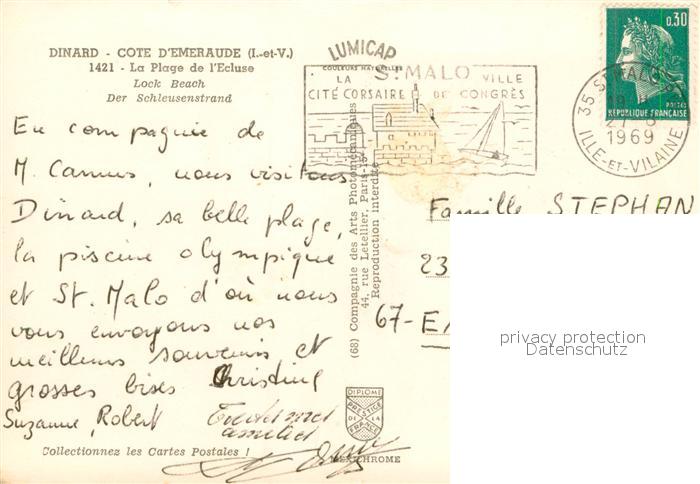 DINARD - COTE D'EMERAUDE (I.-et-V.)
1421 - La Plage de l'Ecluse
Lock Beach
Der Schleusenstrand
LUMICAP
COULEURS NATURELLES
LA ST MALO VILLE
CITÉ CORSAIRE DE CONGRÈS
0,30
POSTES
RÉPUBLIQUE FRANÇAISE
35 ST MALO
1969
ILLE-ET-VILAINE
En compagnie de
M. Camus, nous visitons
Dinard, sa belle plage,
la piscine olympique
et St. Malo d'où nous
vous envoyons nos
meilleurs souvenirs et
grosses bises Christine
Suzanne, Robert
Collectionnez les Cartes Postales !
(68) Compagnie des Arts Photomécaniques
44, rue Letellier, Paris-15e
Reproduction interdite
Famille STEPHAN
23
67-E
privacy protection
Datenschutz
DIPLOME
PRESTIGE
DE LA
FRANCE
MEXICHROME